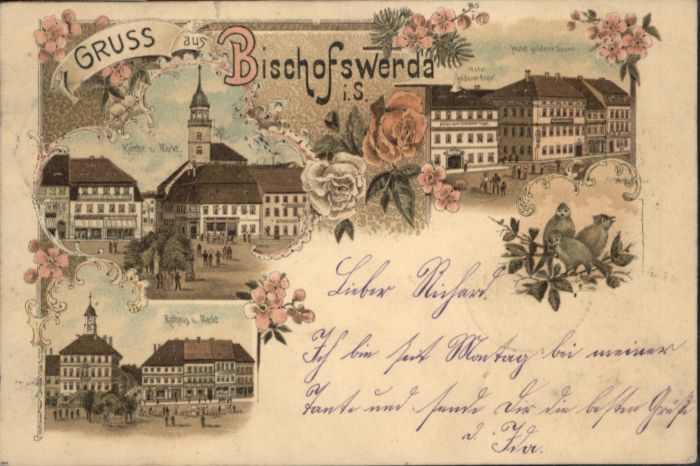 GRUSS aus Bischofswerda i.S.
Kirche u. Markt.
Hotel goldene Sonne
Hotel goldener Engel
Rathaus u. Markt
Lieber Richard.
Ich bin seit Montag bei meiner
Tante und sende Dir die besten Grüße
d. Ida.